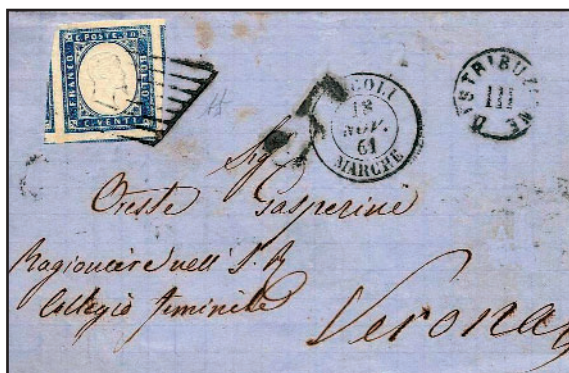 C. POSTE 20
FRANCO
BOLLO
C. VENTI
ASCOLI
18
NOV.
61
MARCHE
DISTRIBUZIONE
III
Sig.
Oreste Gasperini
Ragioniere nell' I. R.
Collegio feminile
Verona